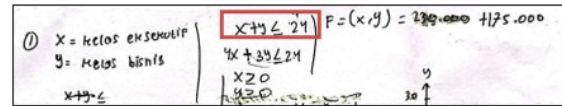 ① X = Kelas eksekutif
y = Kelas bisnis
x+y ≤
x+y ≤ 24
4x + 3y ≤ 24
x ≥ 0
y ≥ 0
F = (x,y) = +175.000
y
30